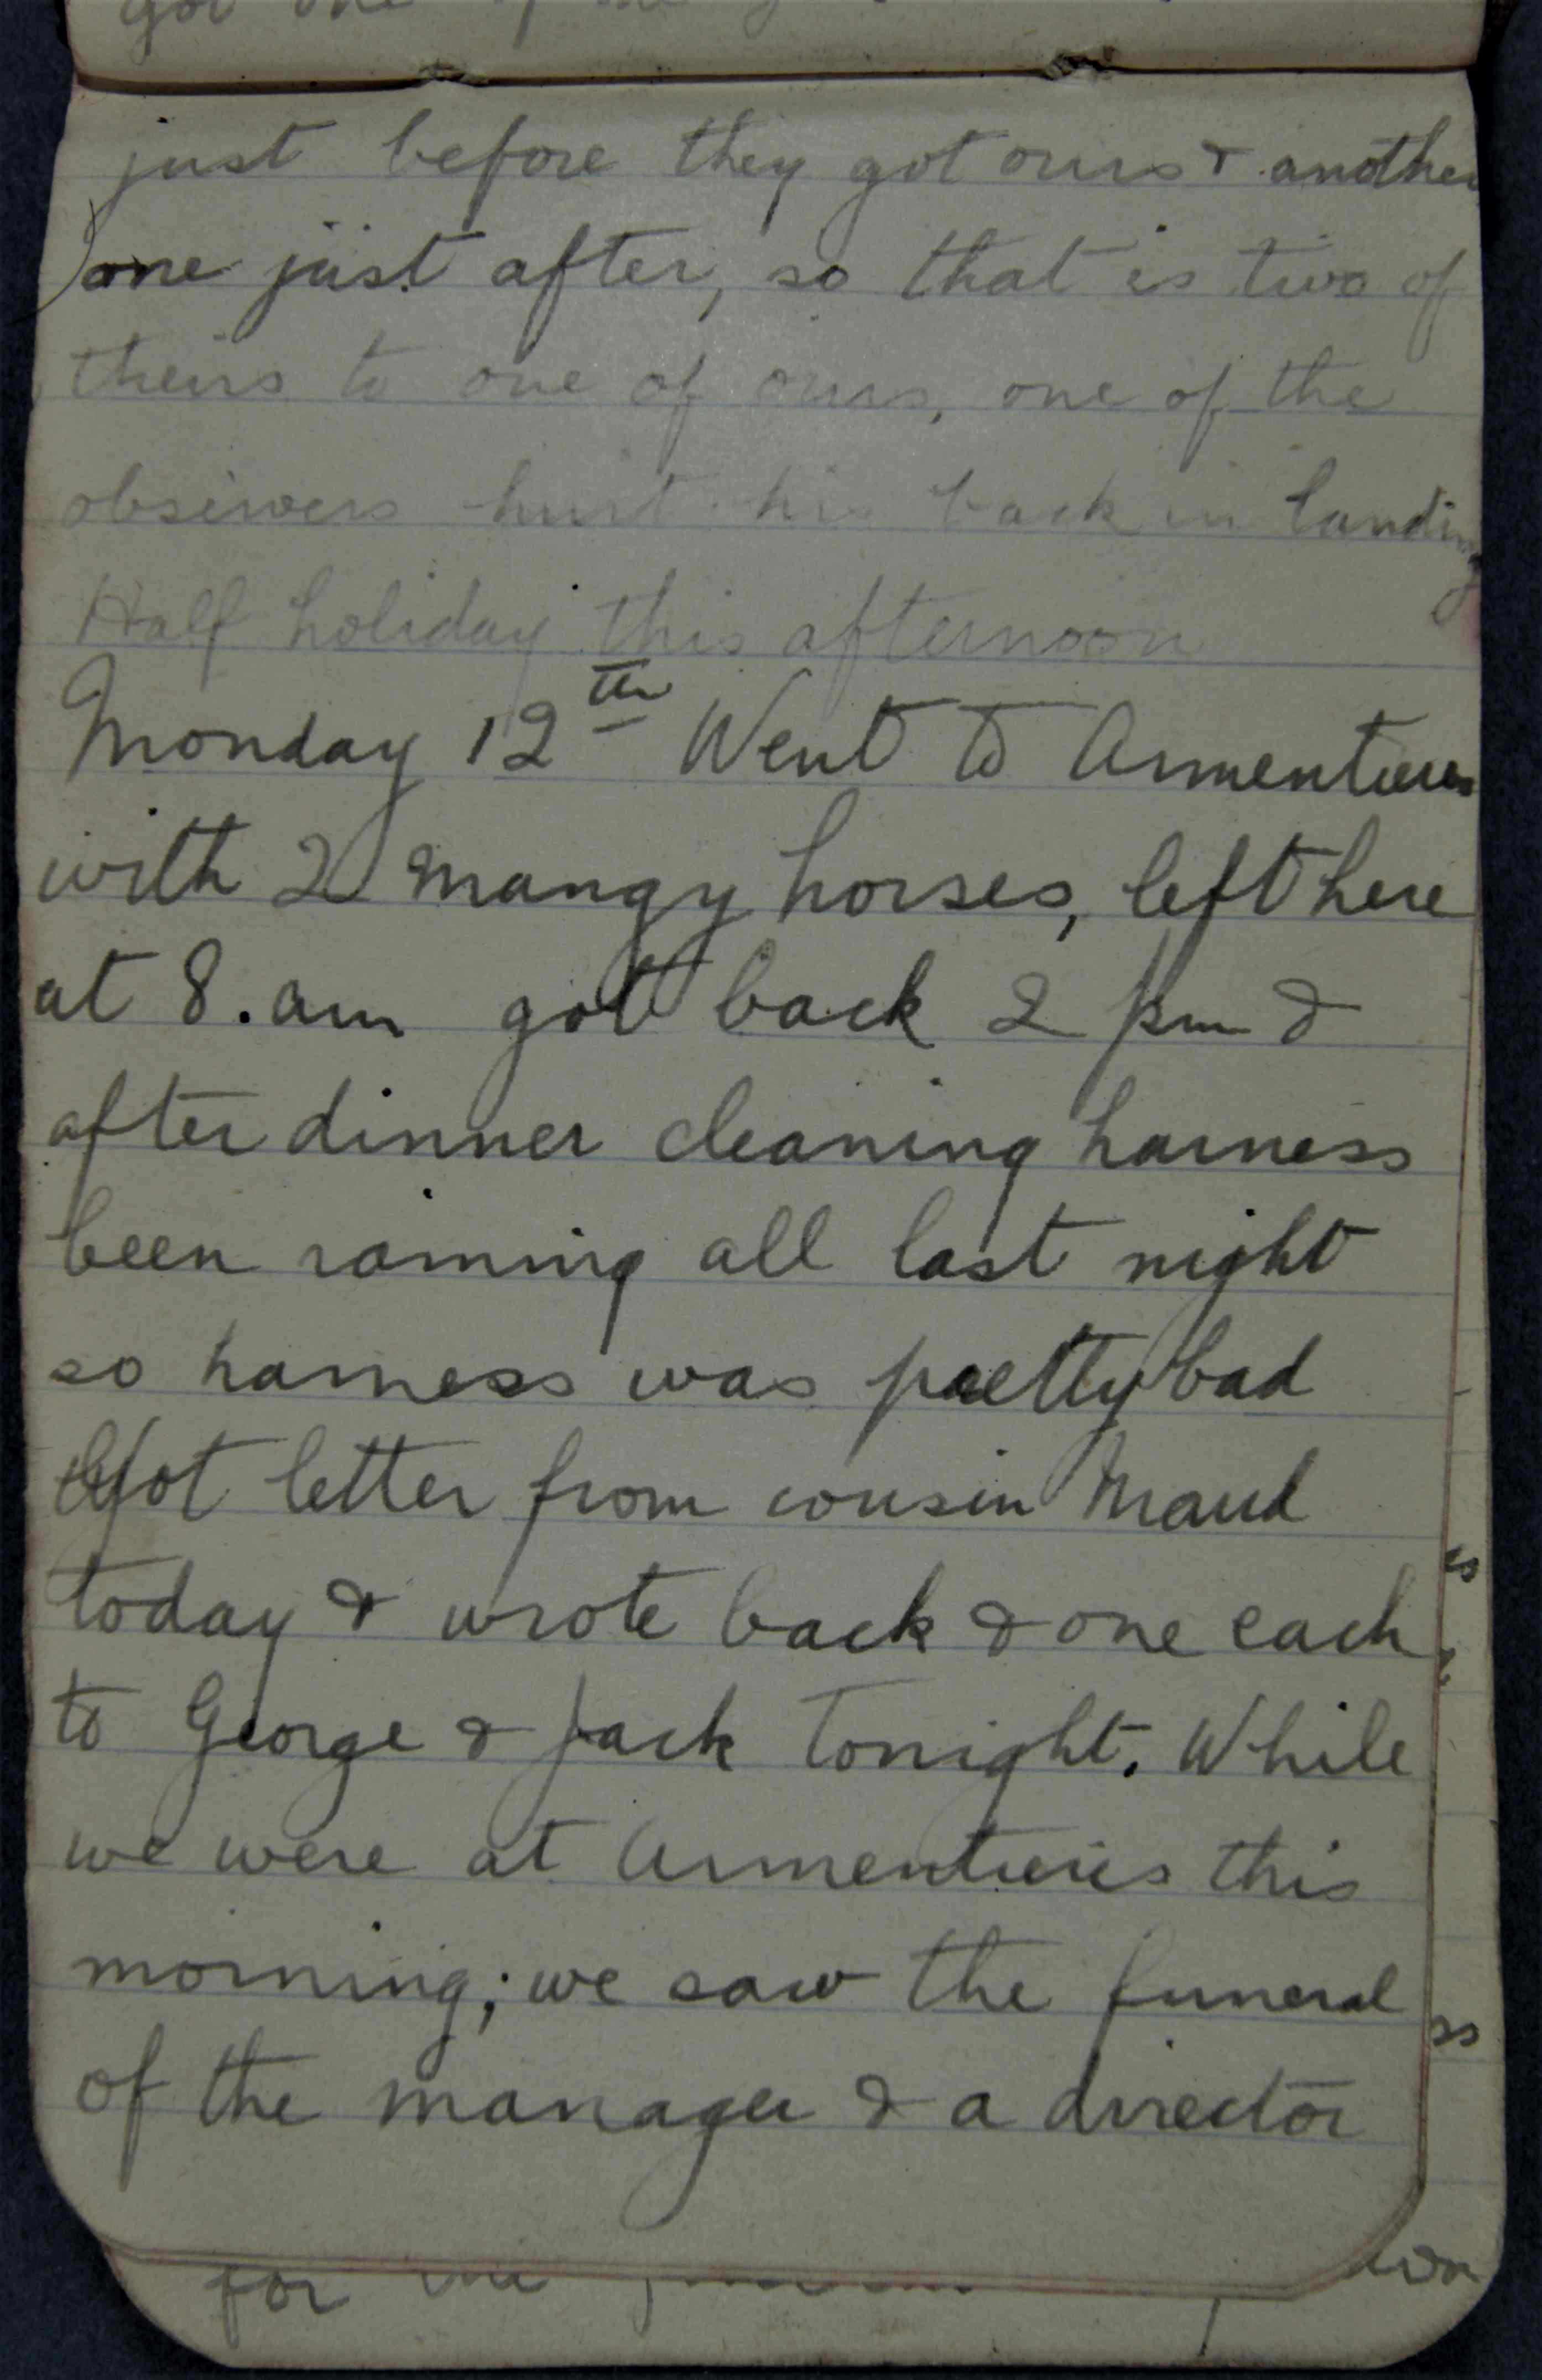 just before they got ours & another
one just after, so that is two of
theirs to one of ours, one of the
observers hurt his back in landing
Half holiday this afternoon
Monday 12th Went to Armentieres
with 2 mangy horses, left here
at 8.am got back 2 pm &
after dinner cleaning harness
been raining all last night
so harness was pretty bad
Got letter from cousin Maud
today & wrote back & one each
to George & Jack tonight. While
we were at Armentieres this
morning; we saw the funeral
of the manager & a director
for the